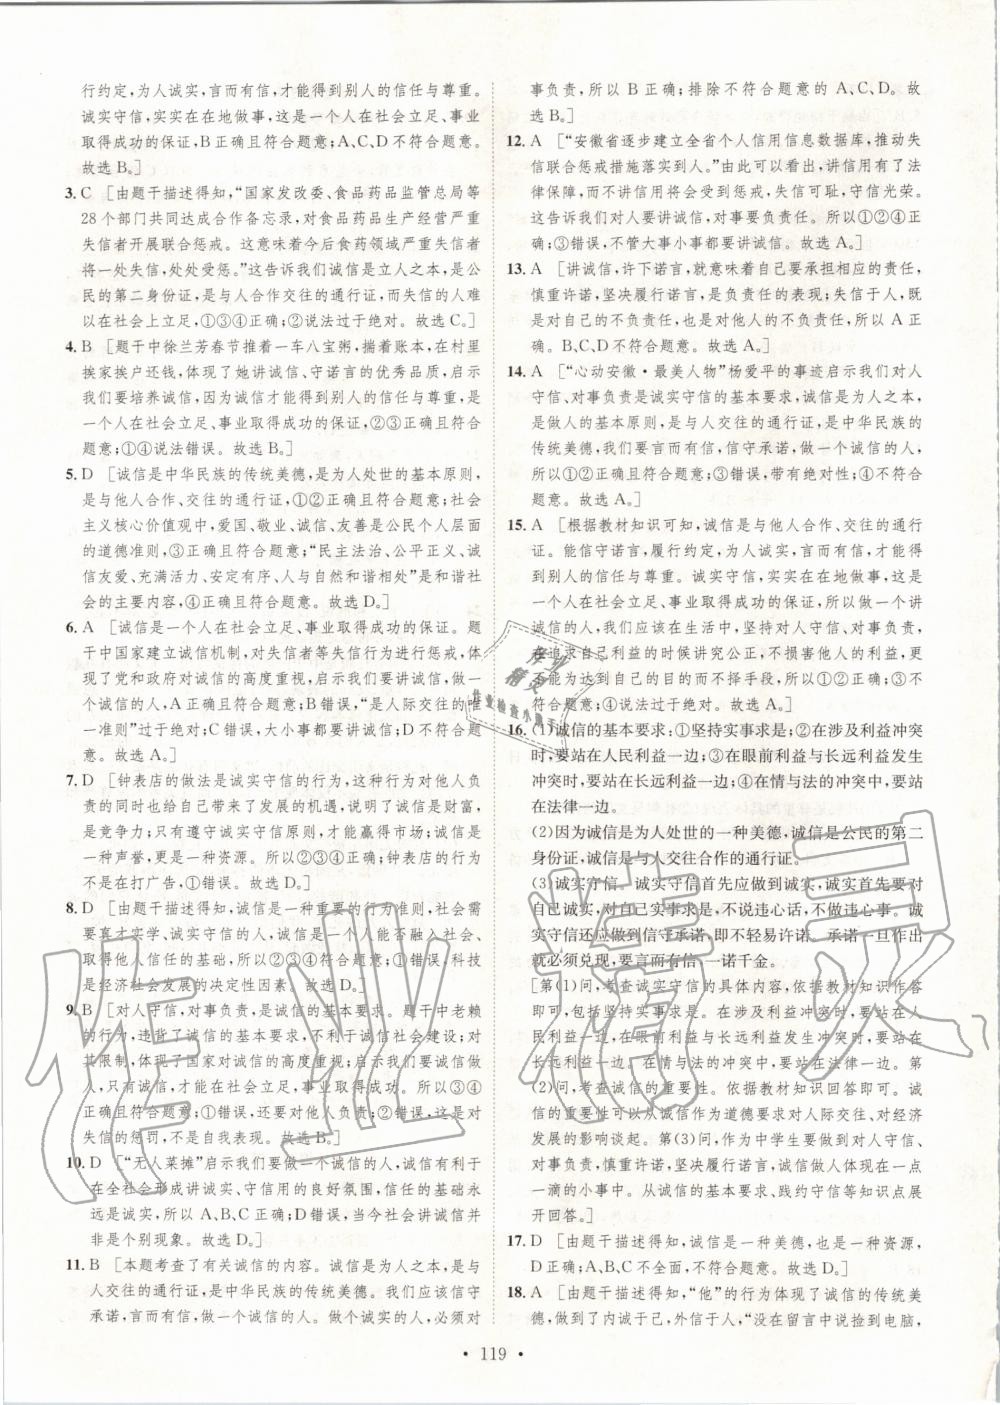 行约定,为人诚实,言而有信,才能得到别人的信任与尊重。
诚实守信,实实在在地做事,这是一个人在社会立足、事业
取得成功的保证,B正确且符合题意;A、C、D不符合题意。
故选B。]
3. C [由题干描述得知,“国家发改委、食品药品监管总局等
28个部门共同达成合作备忘录,对食品药品生产经营严重
失信者开展联合惩戒。这意味着今后食药领域严重失信者
将一处失信,处处受惩。”这告诉我们诚信是立人之本,是公
民的第二身份证,是与人合作交往的通行证,而失信的人难
以在社会上立足,①③④正确;②说法过于绝对。故选C。]
4. B [题干中徐兰芳春节推着一车八宝粥,揣着账本,在村里
挨家挨户还钱,体现了她讲诚信、守诺言的优秀品质,启示
我们要培养诚信,因为诚信才能得到别人的信任与尊重,是
一个人在社会立足、事业取得成功的保证,②③正确且符合
题意;①④说法错误。故选B。]
5. D [诚信是中华民族的传统美德,是为人处世的基本原则,
是与他人合作、交往的通行证,①②正确且符合题意;社会
主义核心价值观中,爱国、敬业、诚信、友善是公民个人层面
的道德准则,③正确且符合题意;“民主法治、公平正义、诚
信友爱、充满活力、安定有序、人与自然和谐相处”是和谐社
会的主要内容,④正确且符合题意。故选D。]
6. A [诚信是一个人在社会立足、事业取得成功的保证。题
干中国家建立诚信机制,对失信者等失信行为进行惩戒,体
体现了党和政府对诚信的高度重视,启示我们要做一个诚
信的人,A正确且符合题意;B错误,“是人际交往的唯
一准则”过于绝对;C错误,大小事都要讲诚信;D与题意不
符。故选A。]
7. D [钟表店的做法是诚实守信的行为,这种行为对他人负
责的同时也给自己带来了发展的机遇,说明了诚信是财富,
是竞争力;只有遵守诚实守信原则,才能赢得市场;诚信是
一种声誉,更是一种资源。所以②③④正确;钟表店的行为
不是在打广告,①错误。故选D。]
8. D [由题干描述得知,诚信是一种重要的行为准则,社会需
需要真才实学、诚实守信的人,诚信是一个人能否融入社会、
取得他人信任的基础,所以①②④正确;③错误,科技
是经济社会发展的决定性因素。故选D。]
9. B [对人守信,对事负责,是诚信的基本要求。题干中老赖
的行为,违背了诚信的基本要求,不利于诚信社会建设;对
其限制,体现了国家对诚信的高度重视;启示我们要诚信做
人,只有这样,才能在社会立足,事业取得成功。所以③④
正确且符合题意;①错误,还要对他人负责;②错误,这是对
失信的惩罚,不是自我表现。故选B。]
10. D [“无人菜摊”启示我们要做一个诚信的人,诚信有利于
在全社会形成讲诚实、守信用的良好氛围,信任的基础永
远是诚实,所以A、B、C正确;D错误,当今社会讲诚信并
非是个别现象。故选D。]
11. B [本题考查了有关诚信的内容。诚信是为人之本,是与
人交往的通行证,是中华民族的传统美德。我们应该信守
承诺,做一个诚信的人。做个诚实的人,必须对
事负责,所以B正确;排除不符合题意的A、C、D。故
选B。]
12. A [“安徽省逐步建立全省个人信用信息数据库,推动失
信联合惩戒措施落实到人。”由此可以看出,讲信用有了法
律保障,而不讲信用将会受到惩戒,失信可耻,守信光荣。
这告诉我们对人要讲诚信,对事要负责任。所以①②④正
确;③错误,不管大事小事都要讲诚信。故选A。]
13. A [讲诚信,许下诺言,就意味着自己要承担相应的责任,
慎重许诺,坚决履行诺言,是负责任的表现;失信于人,既
是对自己的不负责任,也是对他人的不负责任,所以A正
确。B、C、D不符合题意。故选A。]
14. A [“心动安徽·最美人物”杨爱平的事迹启示我们对人
守信、对事负责是诚实守信的基本要求,诚信是为人之本,
是做人的基本原则,是与人交往的通行证,是中华民族的
传统美德,我们要言而有信,信守承诺,做一个诚信的人,
所以①②符合题意;③错误,带有绝对性;④不符合
题意。故选A。]
15. A [根据教材知识可知,诚信是与他人合作、交往的通行
证。能信守诺言,履行约定,为人诚实,言而有信,才能得
到别人的信任与尊重。诚实守信,实实在在做事,这是一
个人在社会立足、事业取得成功的保证,所以做一个讲
诚信的人,我们应该在生活中,坚持对人守信、对事负责,
在追求自己利益的时候讲究公正,不损害他人的利益,更
不能为达到自己的目的而不择手段,所以①②④正确且
符合题意;③说法过于绝对。故选A。]
16. (1)诚信的基本要求:①坚持实事求是;②在涉及利益冲突
时,要站在人民利益一边;③在眼前利益与长远利益发生
冲突时,要站在长远利益一边;④在情与法的冲突中,要站
在法律一边。
(2)因为诚信是为人处世的一种美德,诚信是公民的第二
身份证,诚信是与人交往合作的通行证。
(3)诚实守信。诚实守信首先应做到诚实,诚实首先要对
自己诚实,对自己实事求是,不说违心话,不做违心事。诚
实守信还应做到信守承诺,即不轻易许诺、承诺一旦作出
就必须兑现,要言而有信,一诺千金。
[第(1)问,考查诚实守信的具体内容,依据教材知识作答
即可,包括坚持实事求是。在涉及利益冲突时,要站在人
民利益一边,在眼前利益与长远利益发生冲突时,要站在
长远利益一边。在情与法的冲突中,要站在法律一边。第
(2)问,考查诚信的重要性。依据教材知识回答即可。诚
信的重要性可以从诚信作为道德要求对人际交往、对经济
发展的影响谈起。第(3)问,作为中学生要做到对人守信、
对事负责,慎重许诺,坚决履行诺言,诚信做人体现在一点
一滴的小事中。从诚信的基本要求、践约守信等知识点展
开回答。]
17. D [由题干描述得知,诚信是一种美德,也是一种资源,
D正确;A、B、C不全面,不符合题意。故选D。]
18. A [由题干描述得知,“他”的行为体现了诚信的传统美
德,做到了内诚于己,外信于人,“没在留言中说捡到电脑,
• 119 •
作业精灵
作业
精灵
作业检查小帮手